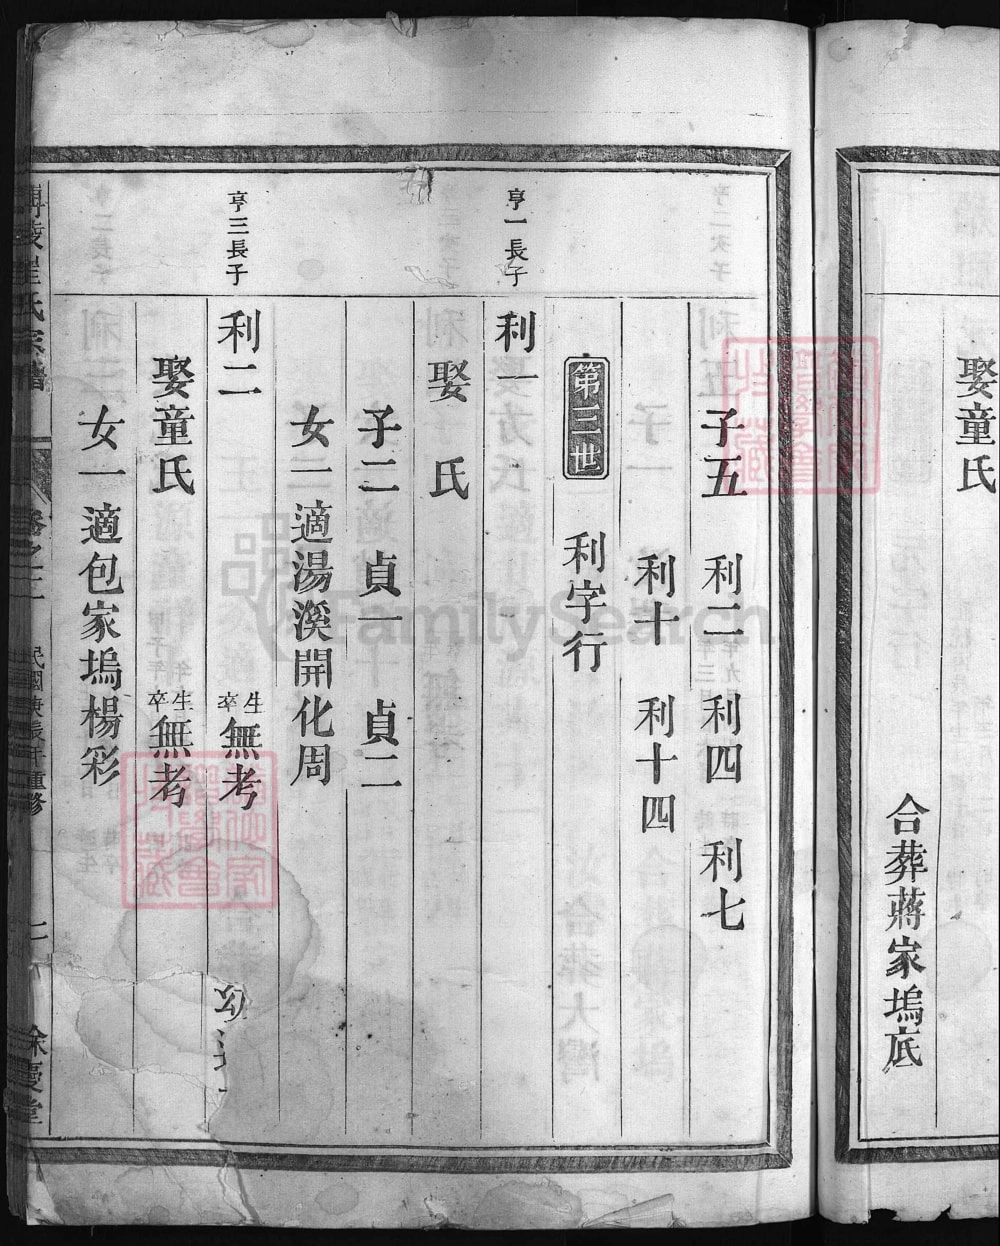 娶童氏
合葬蔣家塢底
子五 利二 利四 利七
利十 利十四
第三世 利字行
亨一長子
利一
娶 氏
子二 貞一 貞二
女二 適湯溪開化周
亨三長子
利二 生卒無考
娶童氏 生卒無考
女一 適包家塢楊彩
崔氏宗譜 卷之二 民國庚辰年重修 二 餘慶堂
FamilySearch